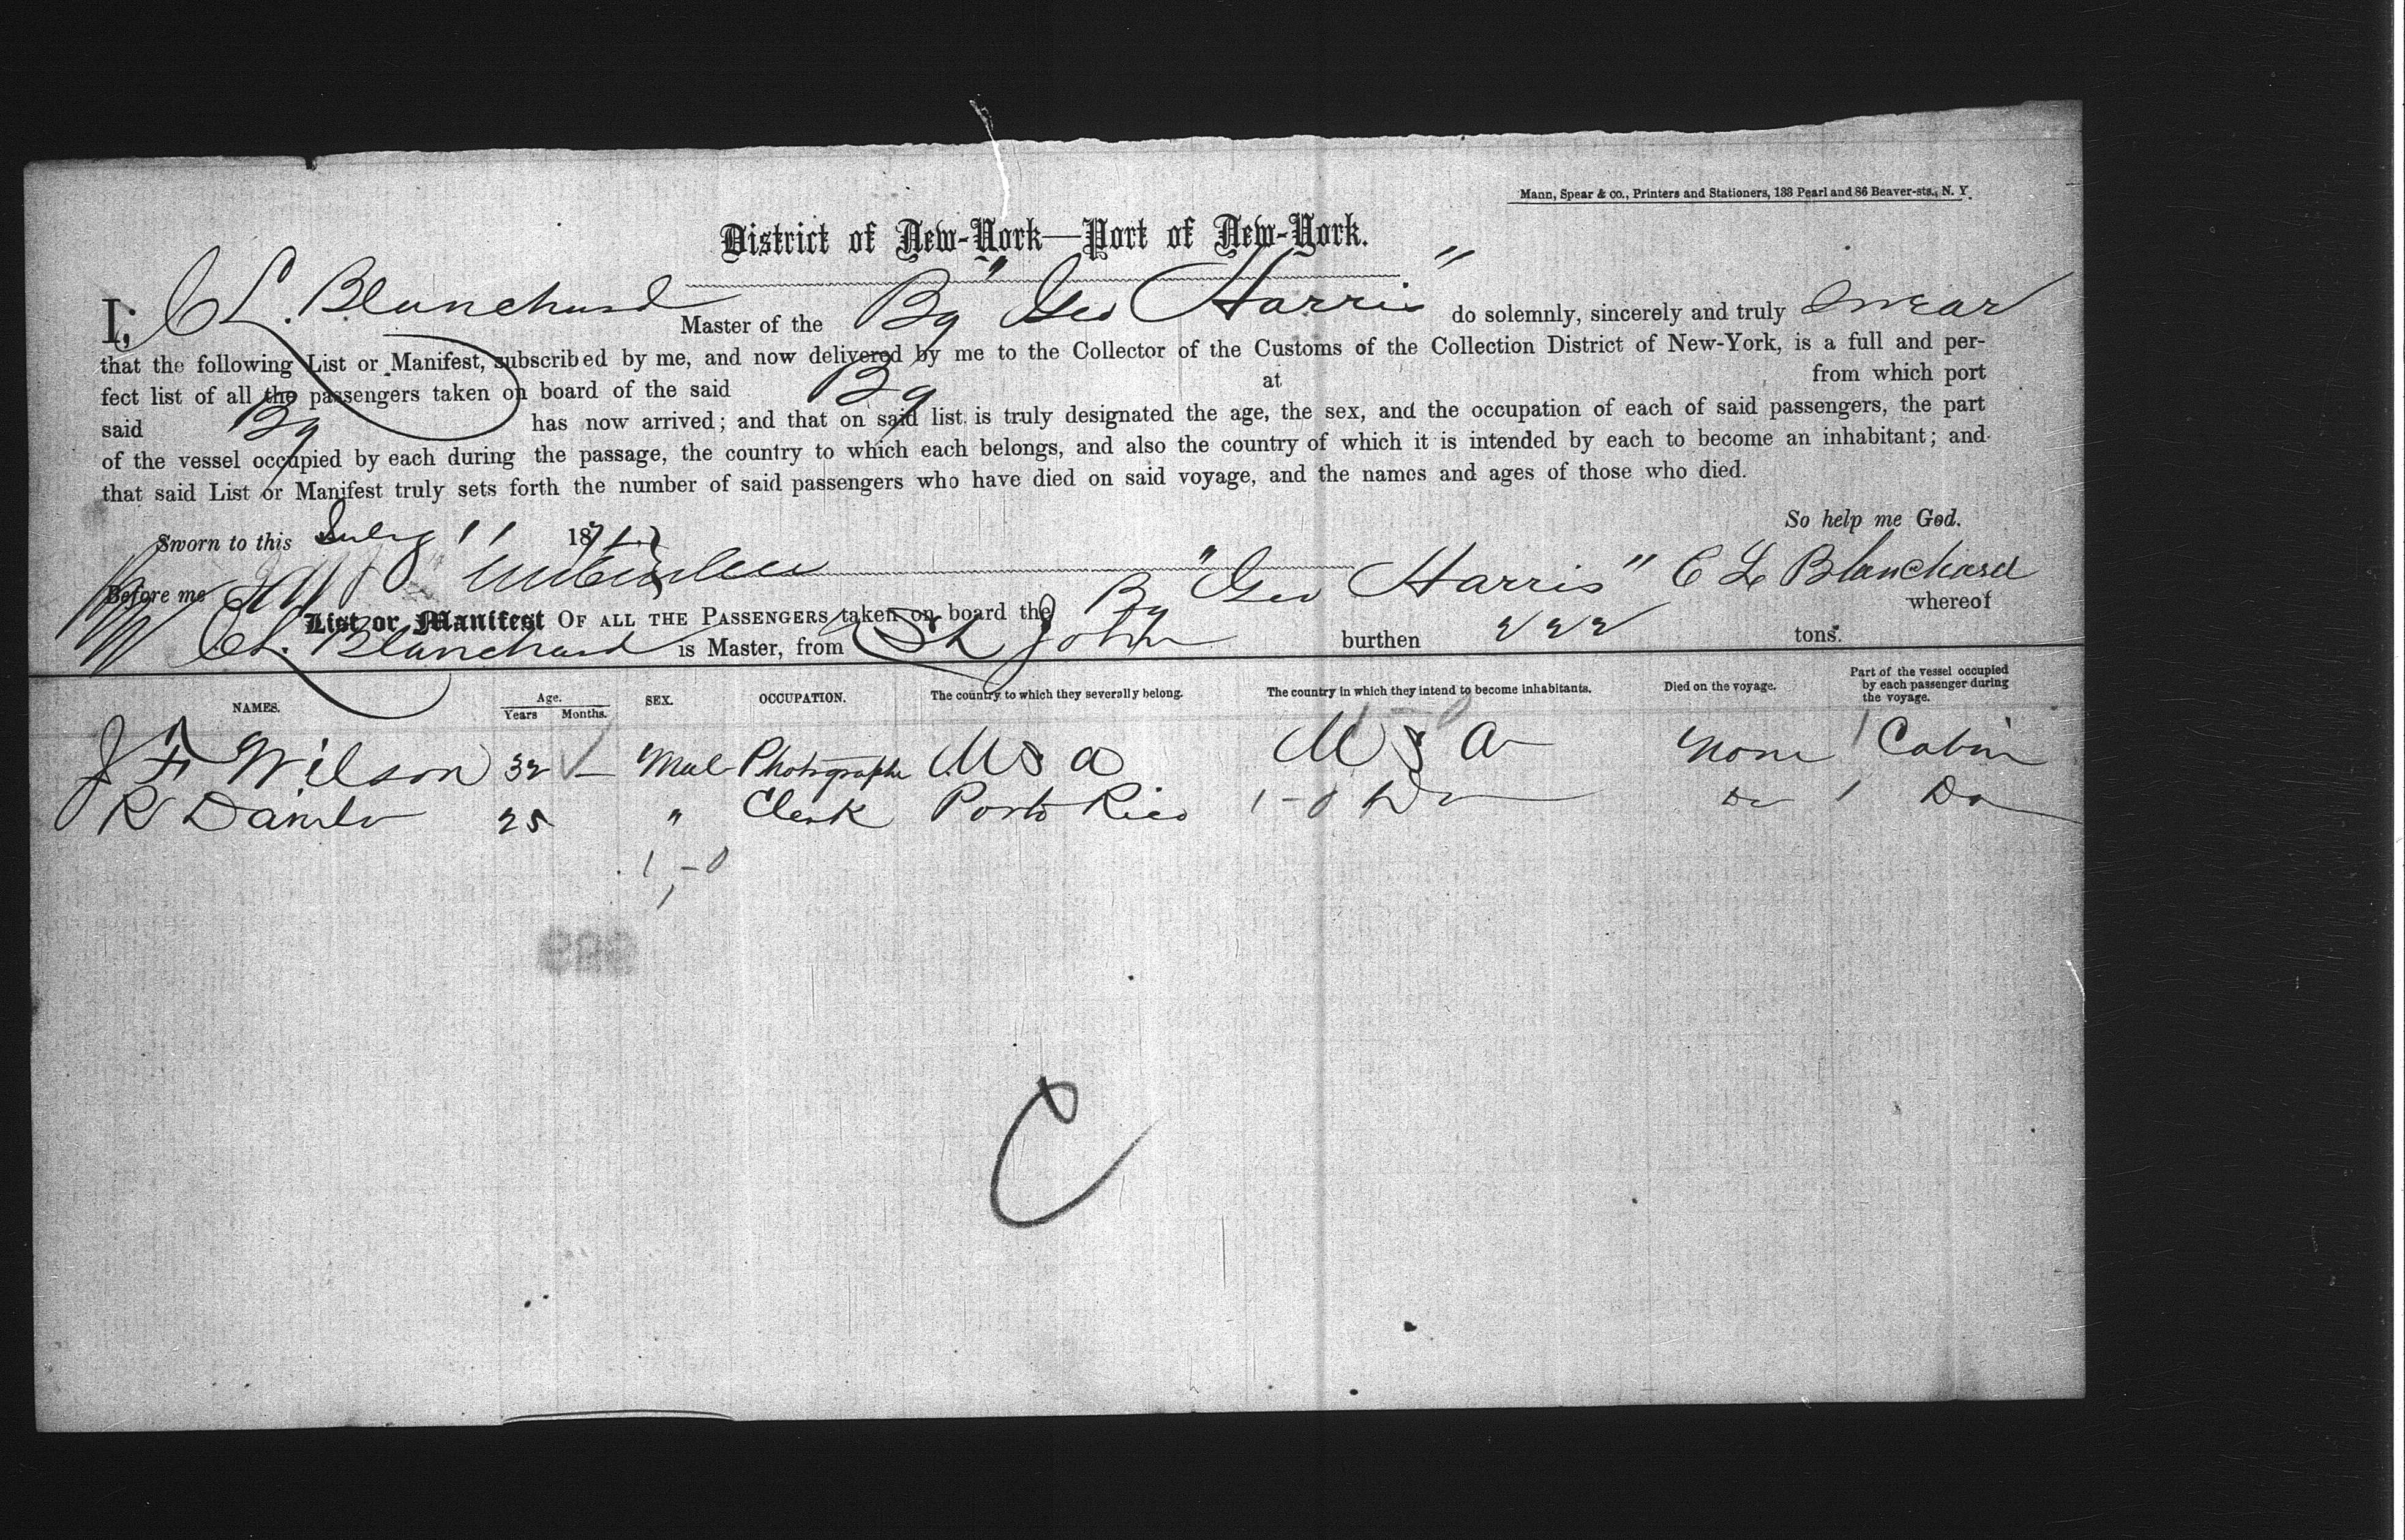 Mann, Spear & co., Printers and Stationers, 133 Pearl and 86 Beaver-sts., N. Y.
District of New-York—Port of New-York.
I, C L. Blanchard Master of the Bg "Geo Harris" do solemnly, sincerely and truly swear
that the following List or Manifest, subscribed by me, and now delivered by me to the Collector of the Customs of the Collection District of New-York, is a full and per-
fect list of all the passengers taken on board of the said Bg at from which port
said Bg has now arrived; and that on said list is truly designated the age, the sex, and the occupation of each of said passengers, the part
of the vessel occupied by each during the passage, the country to which each belongs, and also the country of which it is intended by each to become an inhabitant; and
that said List or Manifest truly sets forth the number of said passengers who have died on said voyage, and the names and ages of those who died.
So help me God.
Sworn to this July 11 187
Before me C L Blanchard
List or Manifest OF ALL THE PASSENGERS taken on board the Bg "Geo Harris" whereof
C L. Blanchard is Master, from St John burthen 222 tons.
NAMES. Age. Years Months. SEX. OCCUPATION. The country to which they severally belong. The country in which they intend to become inhabitants. Died on the voyage. Part of the vessel occupied by each passenger during the voyage.
1 - 0
J F Wilson 32 - Male Photographe U S A U S A None 1 Cabin
R 25 " Clerk Porto Rico 1 - 0 Do Do 1 Do
1 - 0
C